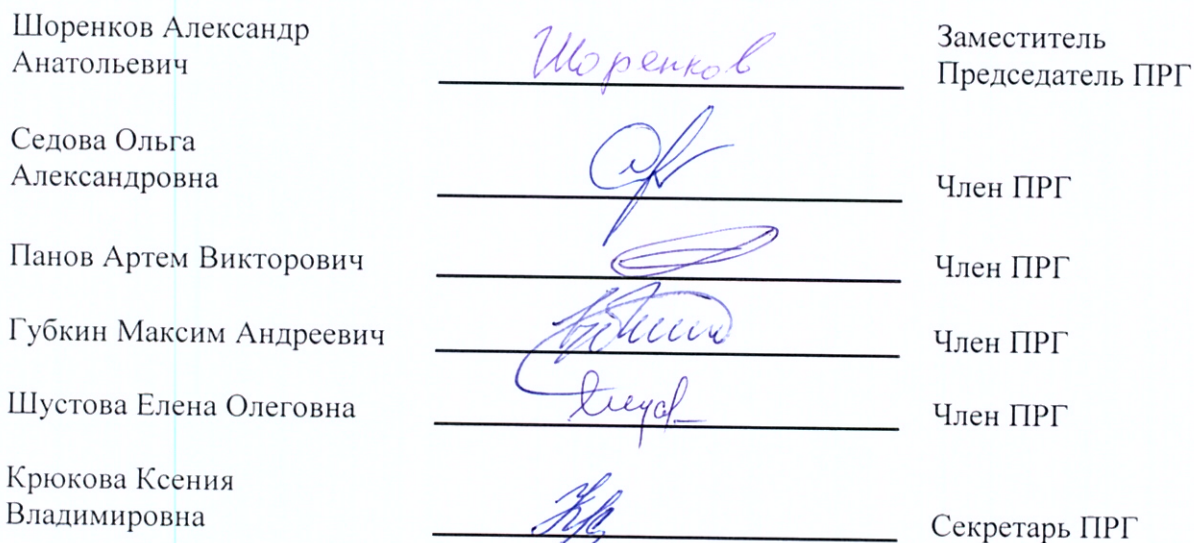 Шоренков Александр
Анатольевич
Шоренков
Заместитель
Председатель ПРГ
Седова Ольга
Александровна
Член ПРГ
Панов Артем Викторович
Член ПРГ
Губкин Максим Андреевич
Член ПРГ
Шустова Елена Олеговна
Член ПРГ
Крюкова Ксения
Владимировна
Секретарь ПРГ